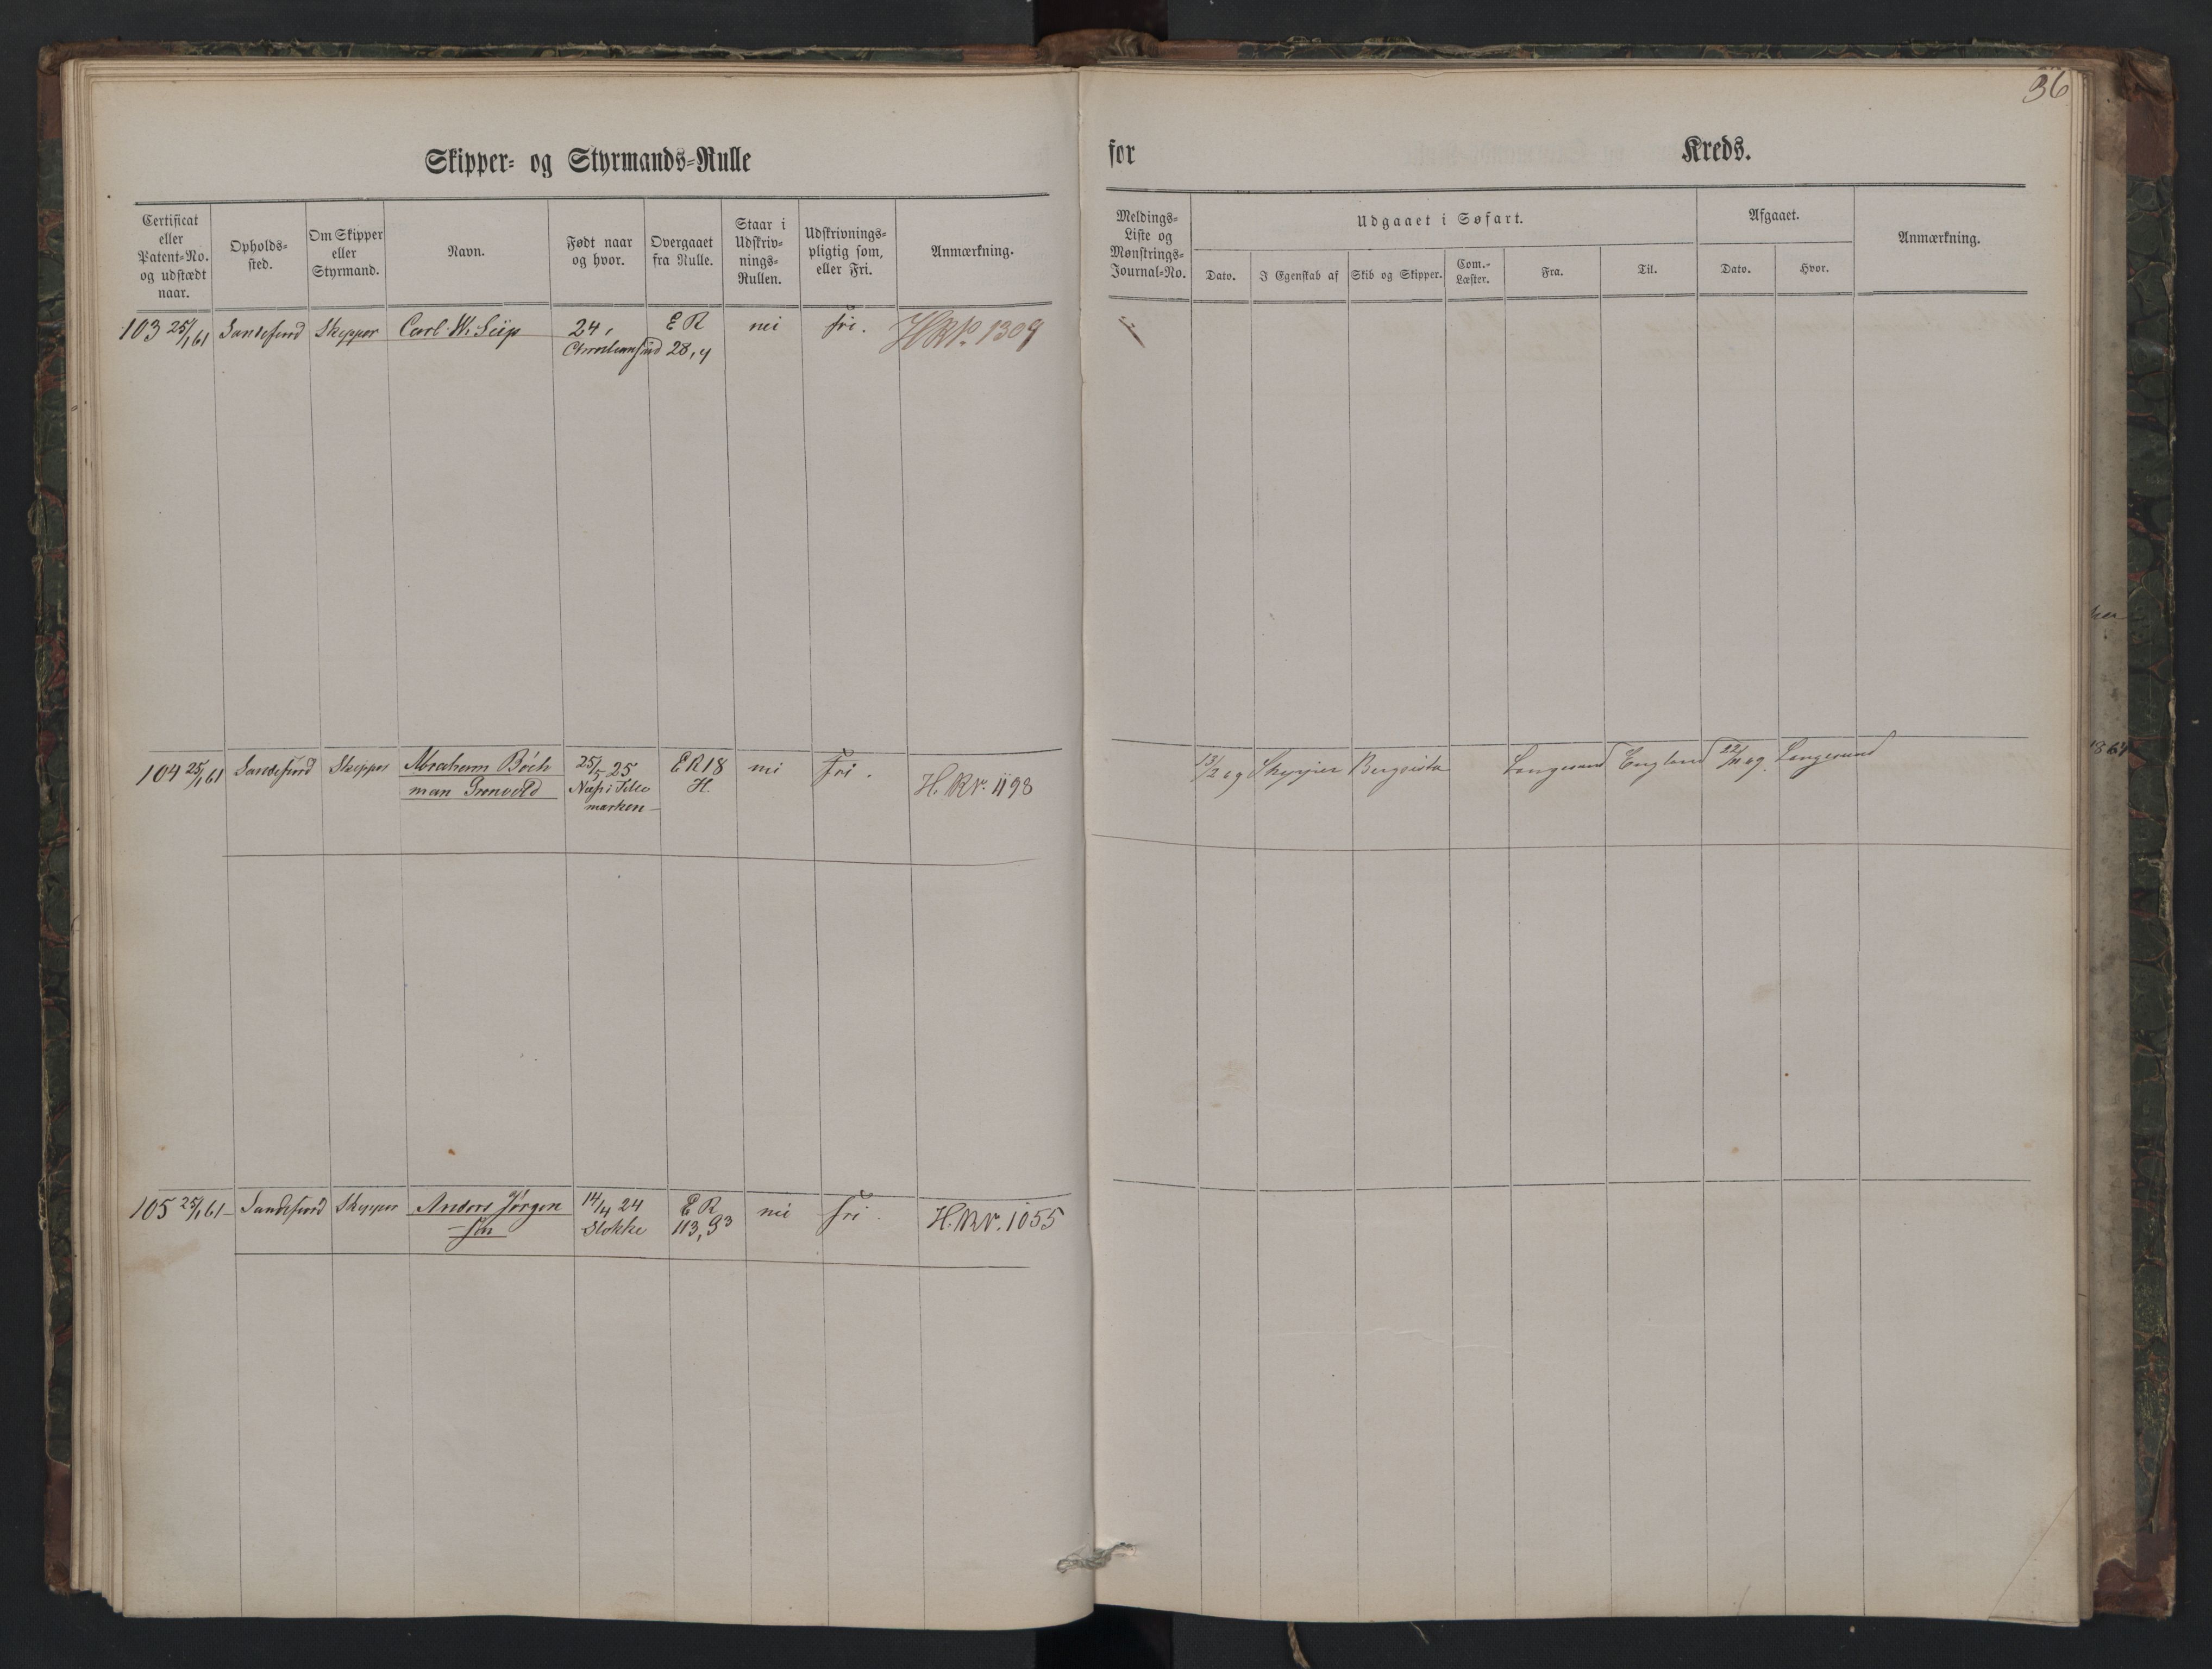 36
Skipper- og Styrmands-Rulle
for Kreds.
Certificat eller Patent-No. og udstædt naar.
Opholds-sted.
Om Skipper eller Styrmand.
Navn.
Født naar og hvor.
Overgaaet fra Rulle.
Staar i Udskriv-nings-Rullen.
Udskrivnings-pligtig som, eller Fri.
Anmærkning.
Meldings-Liste og Mønstrings-Journal-No.
Udgaaet i Søfart.
Dato.
I Egenskab af
Skib og Skipper.
Com.-Læster.
Fra.
Til.
Afgaaet.
Dato.
Hvor.
Anmærkning.
103 25/1 61 Sandefiord Skipper Carl W. Siip 24, E R nei fri. HR No. 1309
Christiansund 28,4
104 25/1 61 Sandefiord Skipper Abraham Böch 25/5 25 ER 18 nei Fri. H. R No. 1198
man Grønvold i Tele H.
marken
13/2 69 Skipper Langesund England 69. Langesund
105 25/1 61 Sandefiord Skipper Anders Jörgen 14/4 24 E R nei fri. H. R No. 1055
sen Stokke 113,93